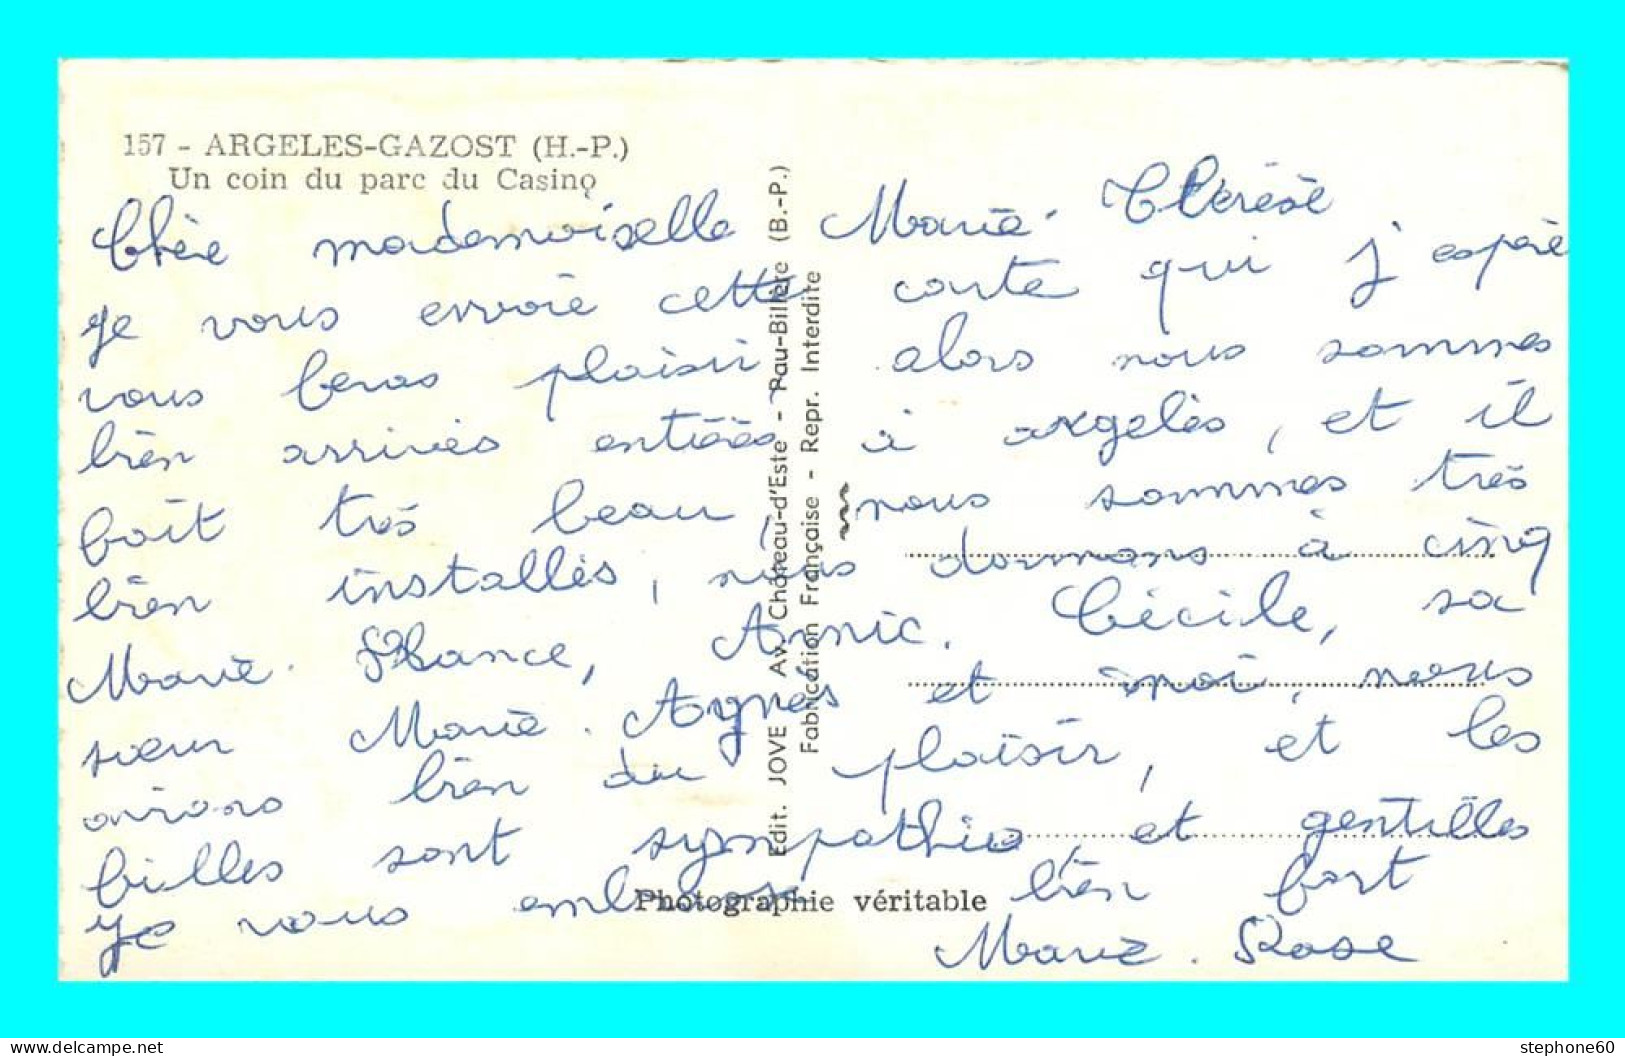 157 - ARGELES-GAZOST (H.-P.)
Un coin du parc du Casino
Chère mademoiselle Marie-Thérèse
je vous envoie cette carte qui j'espère
vous feras plaisir alors nous sommes
bien arrivés entiéés à argelès, et il
fait très beau, nous sommes très
bien installés, nous dormons à cinq
Marie-France, Annic. Cécile, sa
sœur Marie-Agnès et moi, nous
avons bien du plaisir, et les
filles sont sympathie, et gentilles
Je vous embrasse bien fort
Marie-Rose
Edit. JOVE Av. Château-d'Este - Pau-Billère (B.-P.)
Fabrication Française - Repr. Interdite
Photographie véritable
stephone60